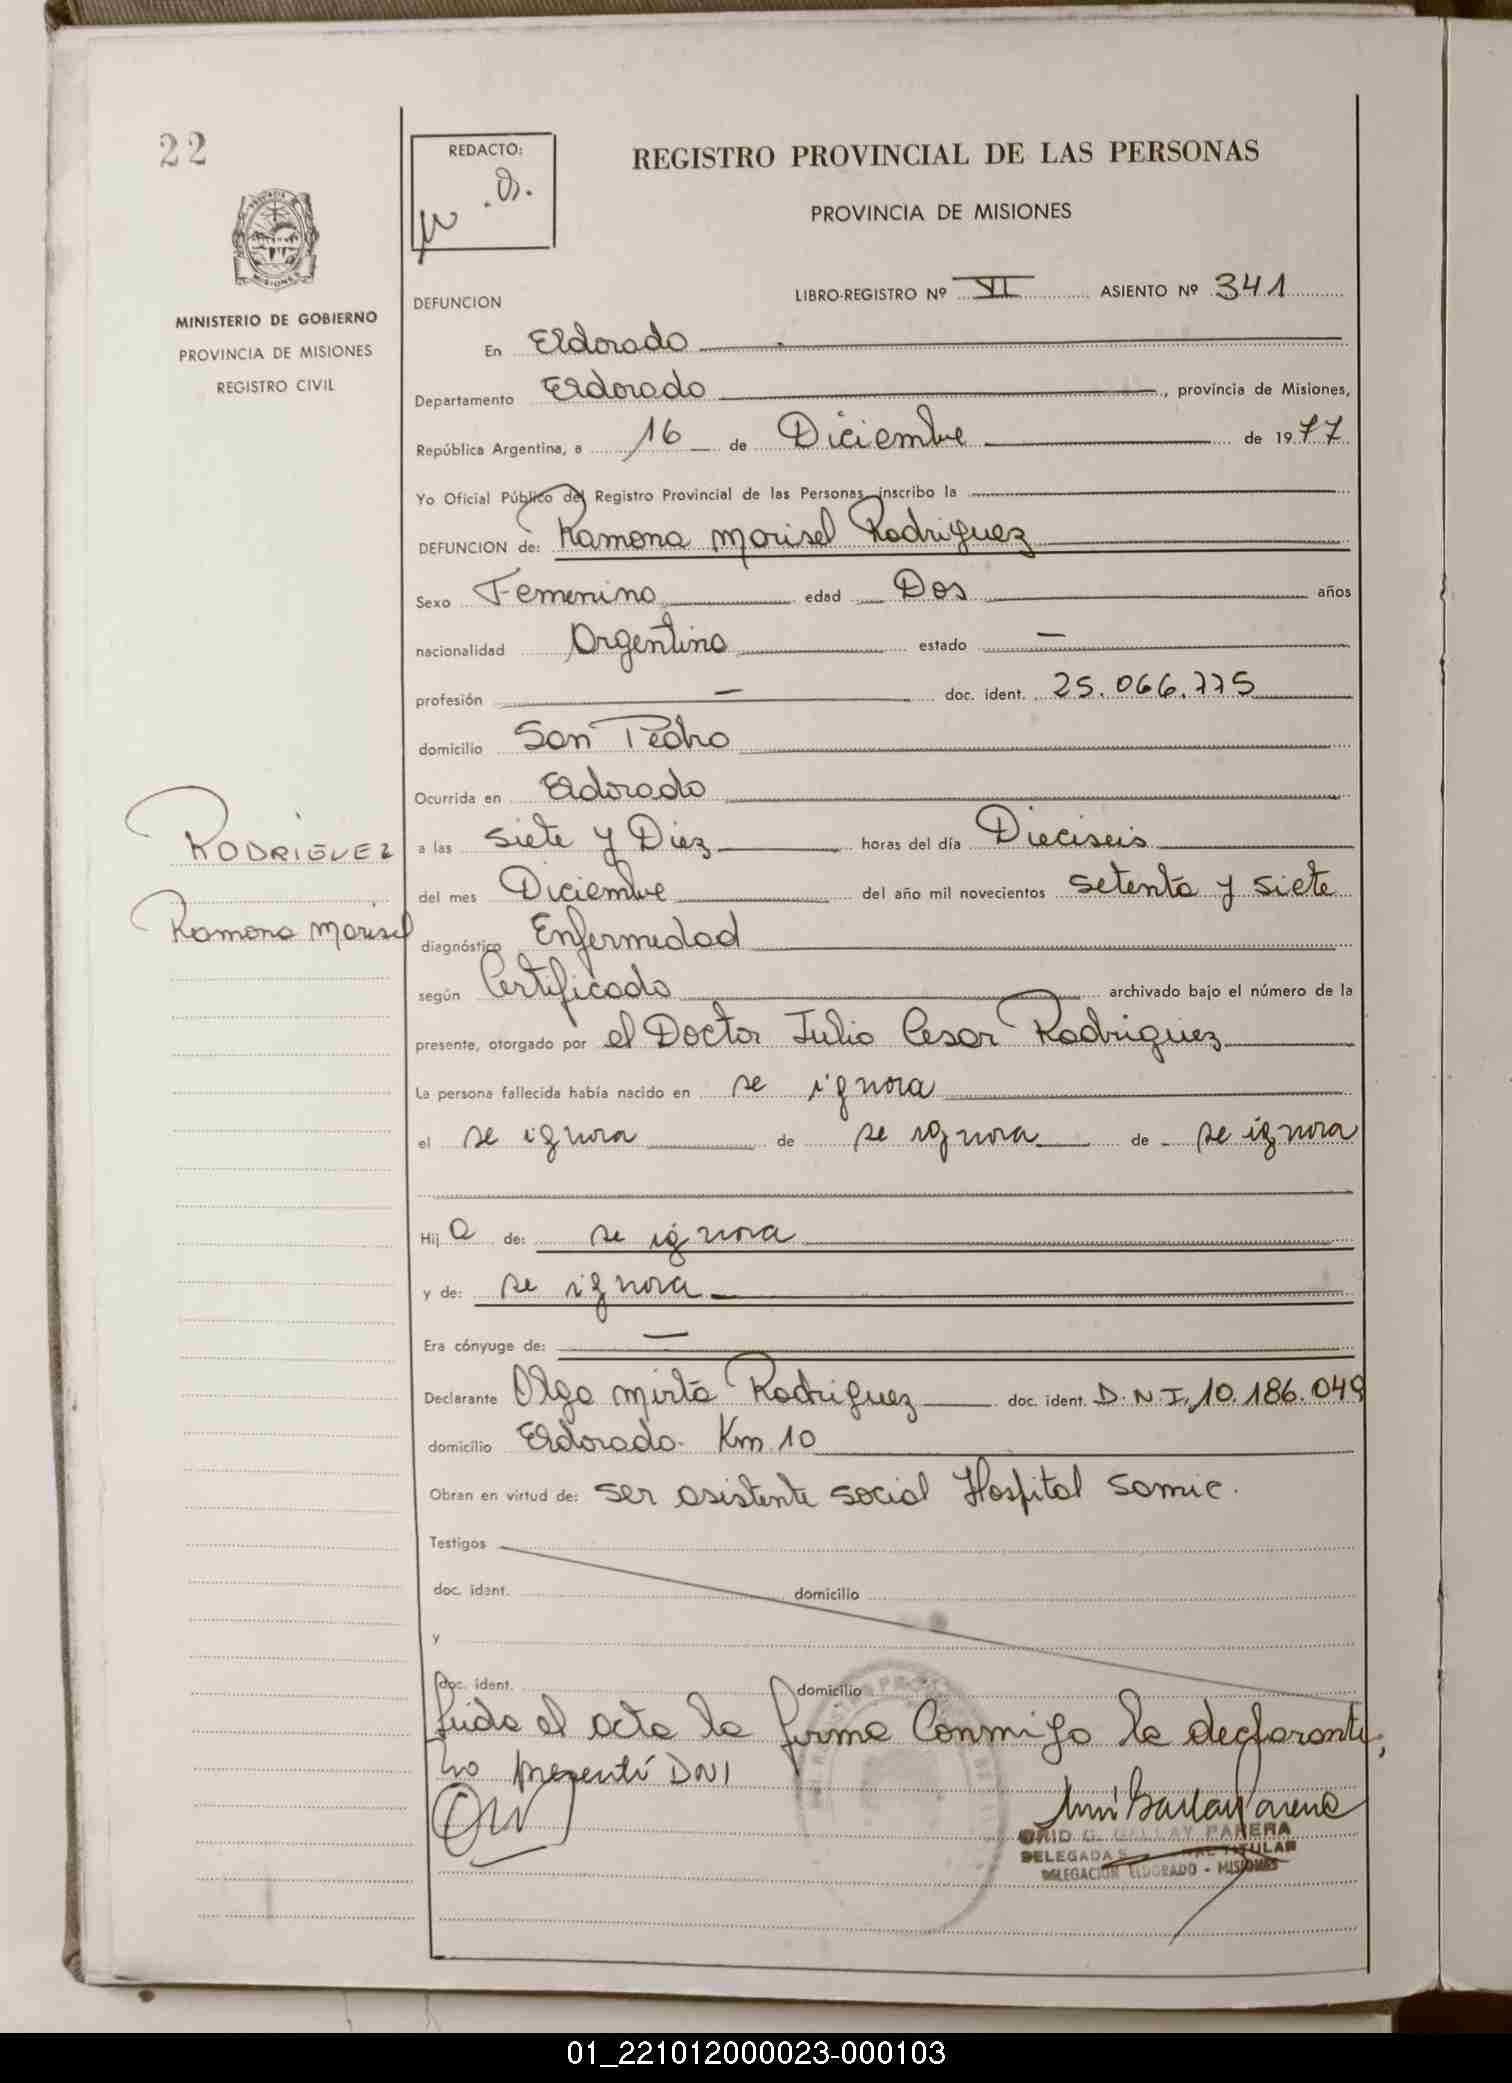 22
REDACTO:
REGISTRO PROVINCIAL DE LAS PERSONAS
PROVINCIA DE MISIONES
MINISTERIO DE GOBIERNO
PROVINCIA DE MISIONES
REGISTRO CIVIL
DEFUNCION LIBRO-REGISTRO Nº VI ASIENTO Nº 341
En Eldorado
Departamento Eldorado, provincia de Misiones,
República Argentina, a 16 de Diciembre de 1977
Yo Oficial Público del Registro Provincial de las Personas, inscribo la
DEFUNCION de: Ramona Marisel Rodriguez
Sexo Femenino edad Dos años
nacionalidad Argentina estado —
profesión — doc. ident. 25.066.775
domicilio San Pedro
Ocurrida en Eldorado
RODRIGUEZ
a las siete y Diez horas del día Dieciseis
del mes Diciembre del año mil novecientos setenta y siete
Ramona Marisel
diagnóstico Enfermedad
según Certificado archivado bajo el número de la
presente, otorgado por el Doctor Julio Cesar Rodriguez
La persona fallecida había nacido en se ignora
el se ignora de se ignora de se ignora
Hij a de: se ignora
y de: se ignora
Era cónyuge de: —
Declarante Olga Mirta Rodriguez doc. ident. D.N.I. 10.186.049
domicilio Eldorado Km 10
Obran en virtud de: ser asistente social Hospital Samic.
Testigos
doc. ident. domicilio
y
doc. ident. domicilio
leida el acta la firma conmigo la declarante,
no presentó DNI
G. GALLAY PARERA
DELEGADA TITULAR
DELEGACION ELDORADO - MISIONES
01_221012000023-000103